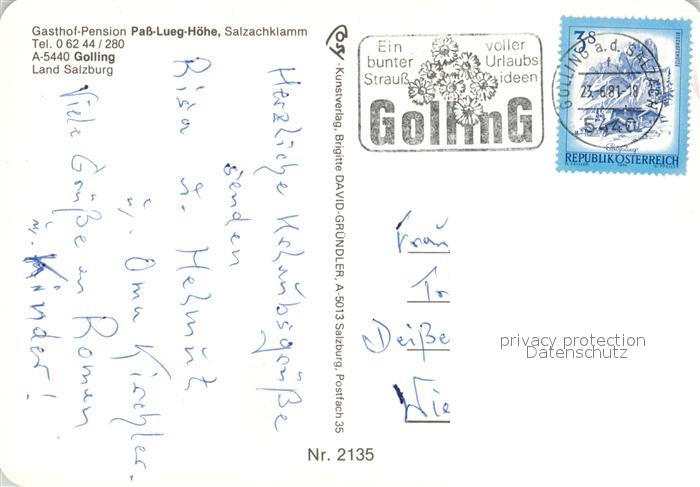 Gasthof-Pension Paß-Lueg-Höhe, Salzachklamm
Tel. 0 62 44 / 280
A-5440 Golling
Land Salzburg
Herzliche Urlaubsgrüße
senden
Risa u. Helmut
u. Oma Kirchler.
Viele Grüße an Roman
u. Kinder!
Posy - Kunstverlag, Brigitte DAVID-GRÜNDLER, A-5013 Salzburg, Postfach 35
Ein bunter Strauß
voller Urlaubs ideen
GollinG
GOLLING a.d. SALZACH
f
23.-6.81-18
5440
3S
REPUBLIK ÖSTERREICH
Frau
Deiße
Wie
privacy protection
Datenschutz
Nr. 2135